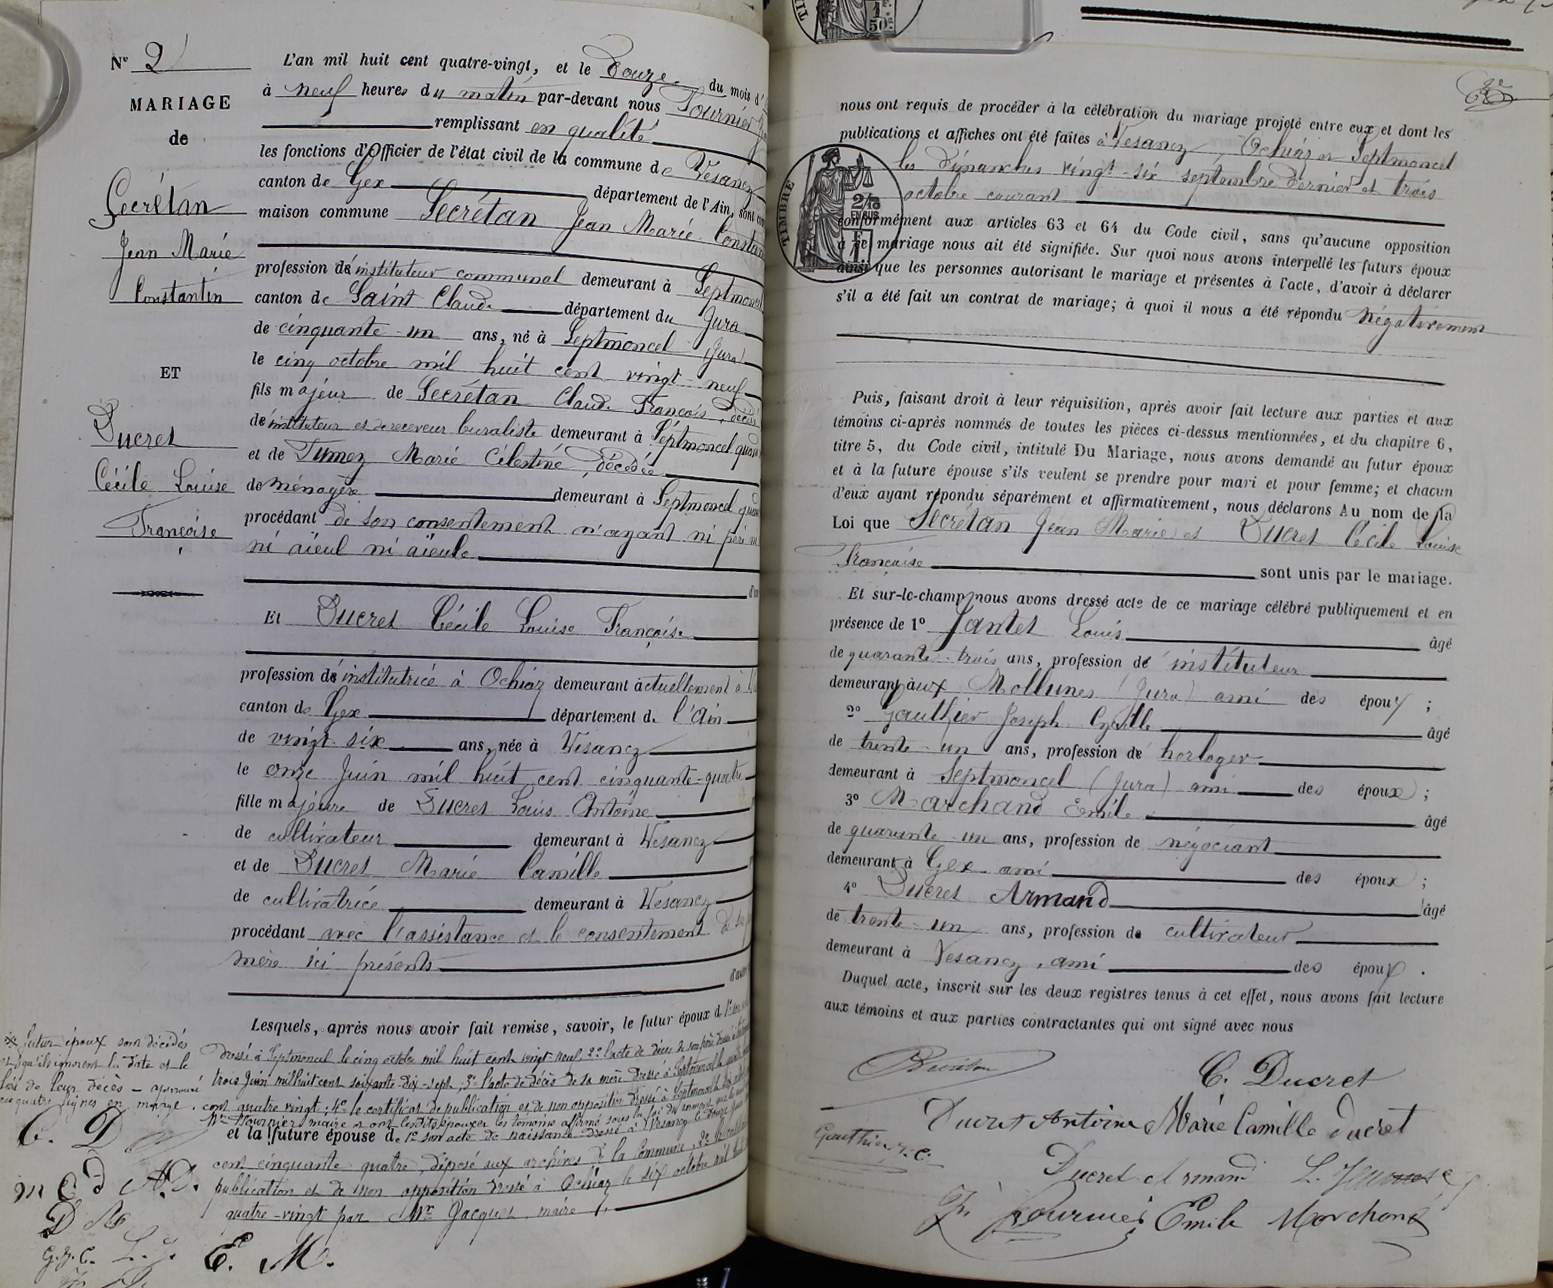 N° 2
MARIAGE
de
Secrétan
Jean Marie
Constantin
ET
Ducret
Cécile Louise
Françoise
L'an mil huit cent quatre-vingt, et le Douze du mois d'
à neuf heures du matin par-devant nous Fournier
remplissant en qualité
les fonctions d'Officier de l'état civil de la commune de Vesancy
canton de Gex département de l'Ain, sont
maison commune Secrétan Jean Marie Constan
profession de instituteur communal demeurant à Septmoncel
canton de Saint Claude département du Jura
de cinquante-un ans, né à Septmoncel (Jura)
le cinq octobre mil huit cent vingt-neuf
fils majeur de Secrétan Claude François, décédé
de instituteur et de receveur buraliste demeurant à Septmoncel quand
et de Tumez Marie Célestine, décédée
de ménagère demeurant à Septmoncel quand
procédant de son consentement n'ayant ni père
ni aïeul ni aïeule
Et Ducret Cécile Louise Françoise
profession de institutrice à Ochiaz demeurant actuellement à
canton de Gex département de l'Ain
de vingt-six ans, née à Vésancy
le onze Juin mil huit cent cinquante-quatre
fille majeure de Ducret Louis Antoine
de cultivateur demeurant à Vésancy
et de Ducret Marie Camille
de cultivatrice demeurant à Vésancy
procédant avec l'assistance et le consentement de
mère ici présents
d'autre
Lesquels, après nous avoir fait remise, savoir, le futur époux d
dressé à Septmoncel le cinq octobre mil huit cent vingt-neuf 2° l'acte de décès de son père dressé à
trois Juin mil huit cent soixante-dix-sept, 3° l'acte de décès de sa mère dressé à Septmoncel
cent quatre vingt; 4° le certificat de publication et de non opposition dressé à Septmoncel
Mr Fournier maire et ont les dits époux et les témoins affirmé sous la foi du serment que
et la future épouse de 1° son acte de naissance dressé à Vésancy le onze
cent cinquante-quatre, déposé aux archives de la Commune, 2° le
publication et de non opposition dressé à Ochiaz le dix octobre mil
quatre-vingt par Mr Jacquet maire
futur époux sont décédés
et qu'ils ignorent la date et le
lieu de leur décès - approuvé
quatre lignes en marge.
C. D
M C d A. D.
G. J. C. L. J. E. M.
nous ont requis de procéder à la célébration du mariage projeté entre eux et dont les
publications et affiches ont été faites à Vesancy, Ochiaz et Septmoncel
les dimanches vingt-six septembre dernier et trois
octobre courant
TIMBRE
2/10
EN SUS
1 F.
conformément aux articles 63 et 64 du Code civil, sans qu'aucune opposition
à ce mariage nous ait été signifiée. Sur quoi nous avons interpellé les futurs époux
ainsi que les personnes autorisant le mariage et présentes à l'acte, d'avoir à déclarer
s'il a été fait un contrat de mariage; à quoi il nous a été répondu Négativement
Puis, faisant droit à leur réquisition, après avoir fait lecture aux parties et aux
témoins ci-après nommés de toutes les pièces ci-dessus mentionnées, et du chapitre 6,
titre 5, du Code civil, intitulé Du Mariage, nous avons demandé au futur époux
et à la future épouse s'ils veulent se prendre pour mari et pour femme; et chacun
d'eux ayant répondu séparément et affirmativement, nous déclarons Au nom de la
Loi que Secrétan Jean Marie et Ducret Cécile Louise
Françoise sont unis par le mariage.
Et sur-le-champ nous avons dressé acte de ce mariage célébré publiquement et en
présence de 1° Jantet Louis âgé
de quarante-trois ans, profession de instituteur
demeurant aux Mollunes (Jura) ami des époux ;
2° Gauthier Joseph Cyrille âgé
de trente-un ans, profession de horloger
demeurant à Septmoncel (Jura) ami des époux ;
3° Marchand Emile âgé
de quarante-un ans, profession de négociant
demeurant à Gex ami des époux ;
4° Ducret Armand âgé
de trente-un ans, profession de cultivateur
demeurant à Vesancy, ami des époux .
Duquel acte, inscrit sur les deux registres tenus à cet effet, nous avons fait lecture
aux témoins et aux parties contractantes qui ont signé avec nous
C. Ducret
Ducret Antoine Marie Camille Ducret
Gauthier J. C.
Ducret Armand
Fournier Emile Marchand